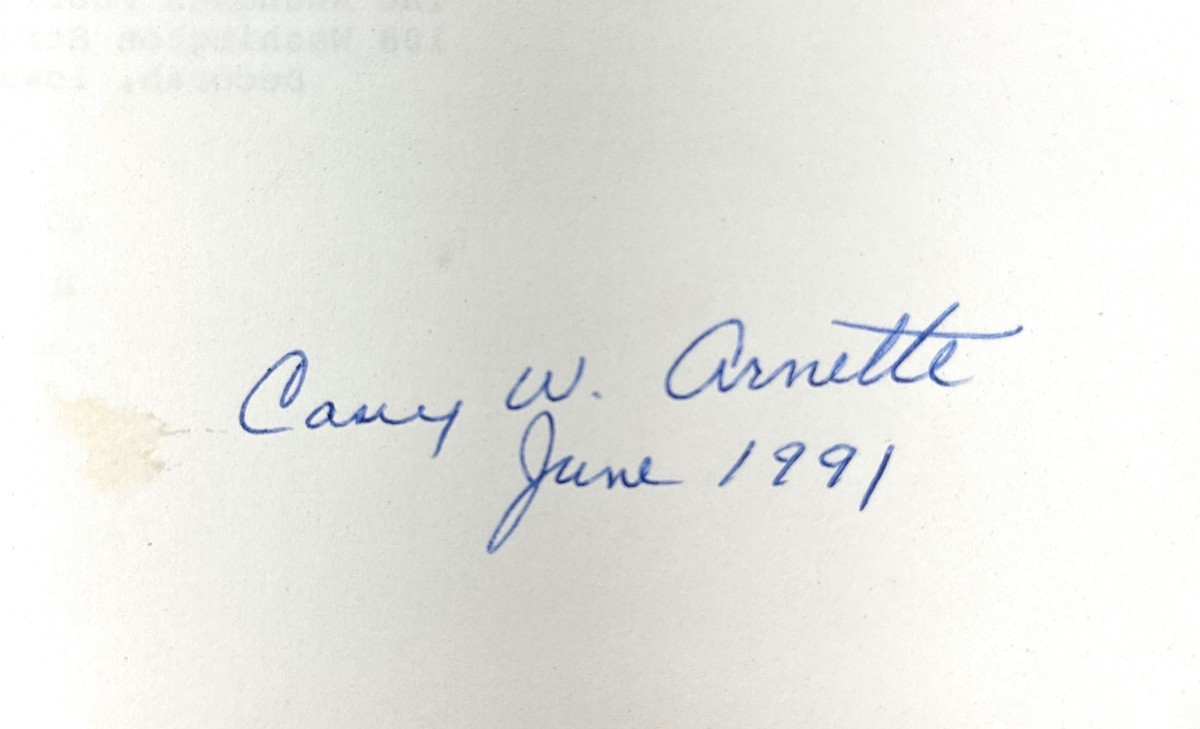 Casey W. Arnette
June 1991